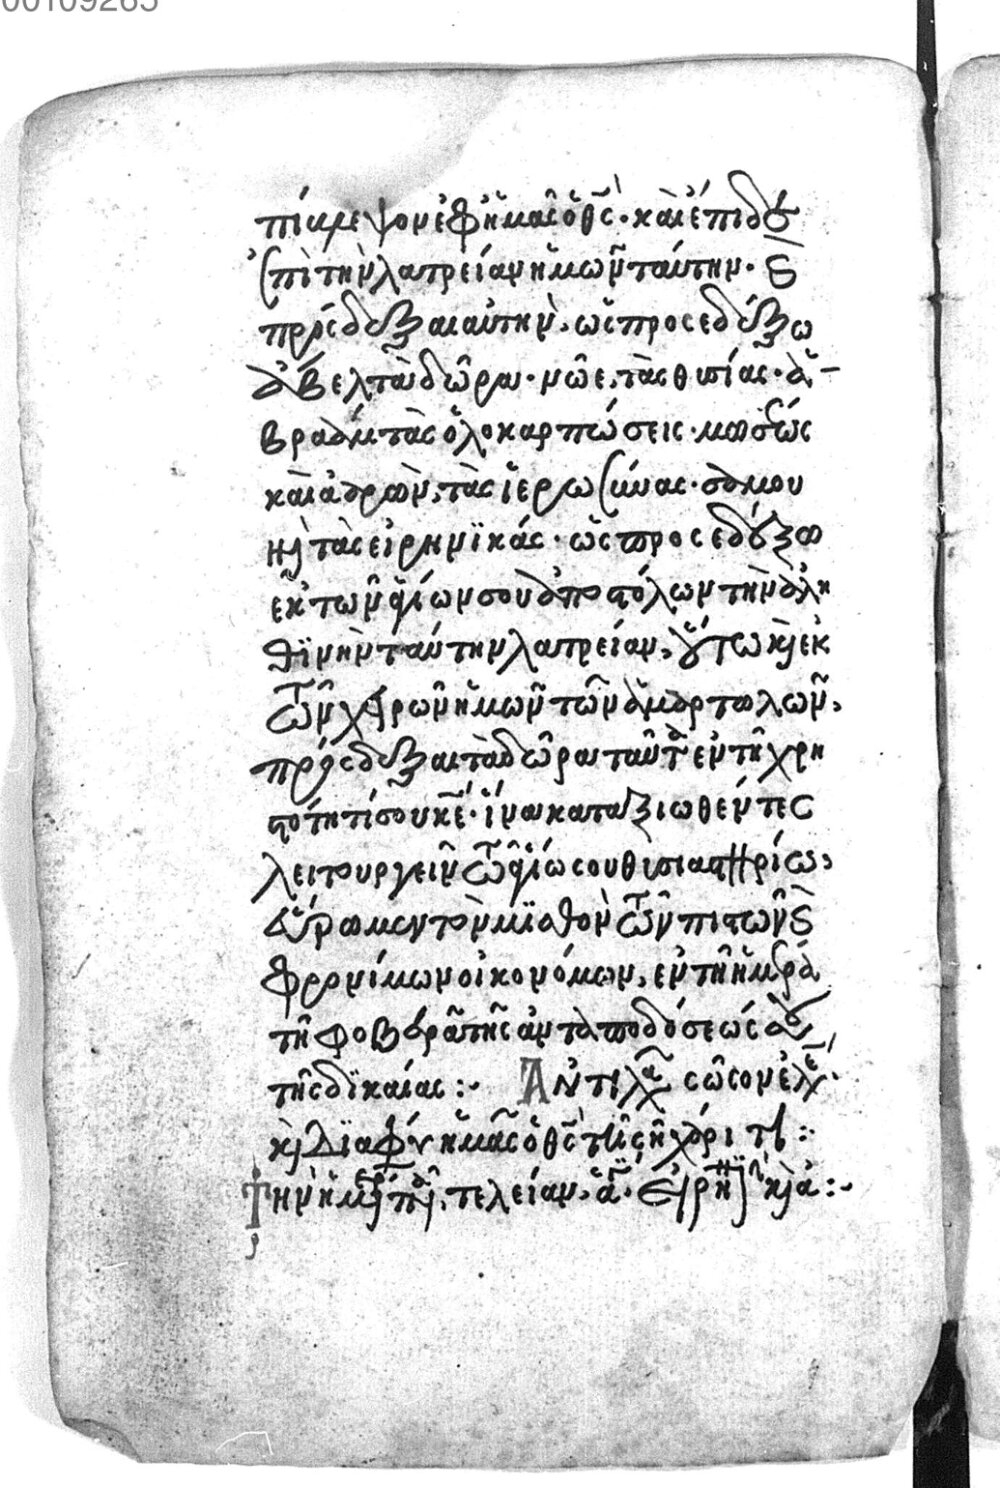 00109265
πίκμεψον ἐφ ἡμᾶς ὁ θς̅· καὶ ἔπιδε
ἐπὶ τὴν λατρείαν ἡμῶν ταύτην· καὶ
πρόσδεξαι αὐτὴν, ὡς προσεδέξω
ἄβελ τὰ δῶρα· νῶε, τὰς θυσίας· ἀ-
βραὰμ τὰς ὁλοκαρπώσεις· μωσέως
καὶ ἀαρὼν, τὰς ἱερωσύνας· σαμου
ὴλ τὰς εἰρηνϊκάς· ὡς προσεδέξω
ἐκ τῶν ἁγίων σου ἀποστόλων τὴν ἀλη
θϊνὴν ταύτην λατρείαν, οὕτω καὶ ἐκ
τῶν χειρῶν ἡμῶν τῶν ἁμαρτωλῶν,
πρόσδεξαι τὰ δῶρα ταῦτα ἐν τῇ χρη
στότητί σου κε̅· ἵνα καταξιωθέντες
λειτουργεῖν τῶ ἁγίω σου θυσιαστηρίω,
εὕρωμεν τὸν μϊσθὸν τῶν πιστῶν καὶ
φρονίμων οἰκονόμων, ἐν τῇ ἡμέρα
τῇ φοβερᾶ τῆς ἀνταποδόσεώς σου
τῆς δϊκαίας :· Ἀντιλαβοῦ σῶσον ἐλέησον·
καὶ Δϊαφύλαξον ἡμᾶς ὁ θς̅ τῇ σῇ χάριτι :·
Τὴν ἡμέραν πᾶσαν, τελείαν, ἁγίαν· εἰρηνικὴν καὶ ἀ :·